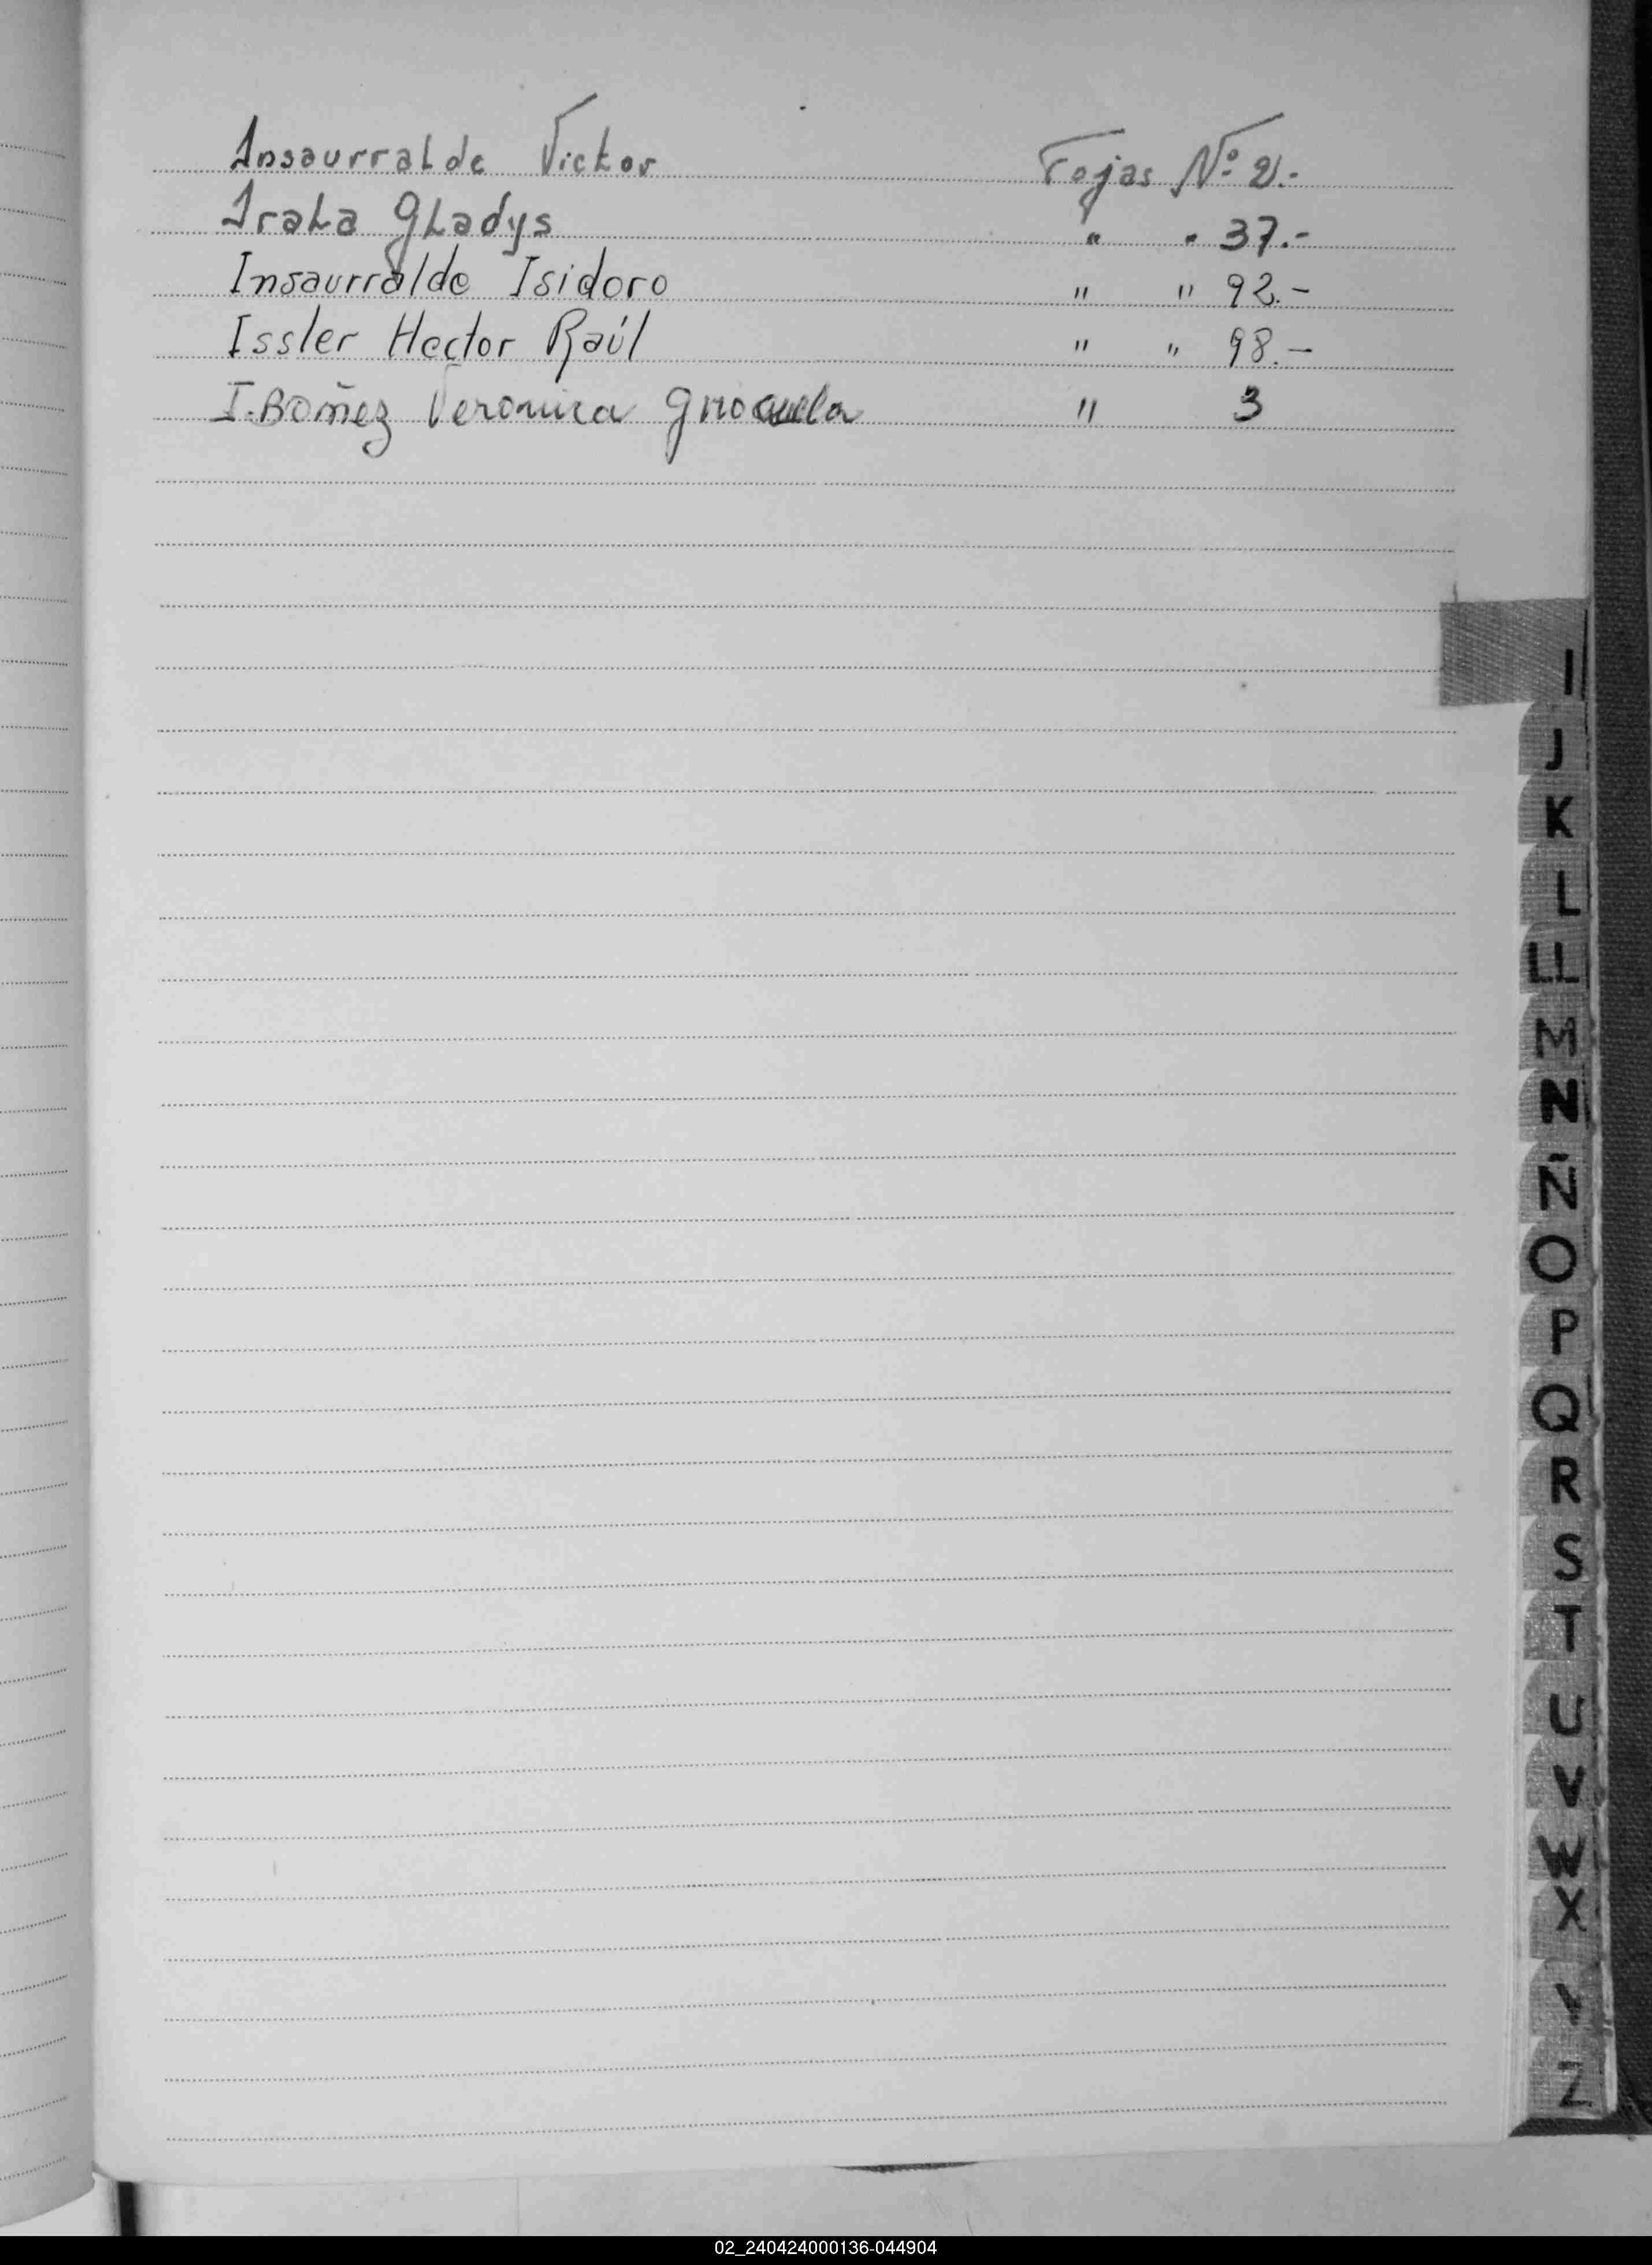 Insaurralde Victor Fojas Nº 2.-
Irala Gladys " " 37.-
Insaurralde Isidoro " " 92.-
Issler Hector Raúl " " 98.-
I.Bañez Veronica " 3
I
J
K
L
LL
M
N
Ñ
O
P
Q
R
S
T
U
V
W
X
Y
Z
02_240424000136-044904